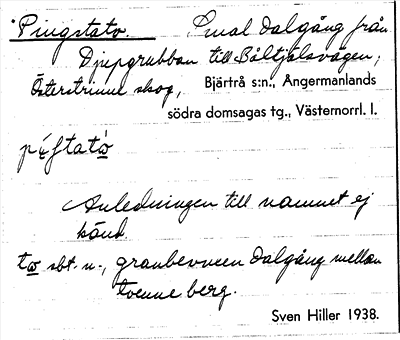 Pingstato. Smal dalgång från
Djupgrubban till Båltjälsvägen,
Österstrinne skog, Bjärtrå s:n., Ångermanlands
södra domsagas tg., Västernorrl. l.
Anledningen till namnet ej
känd
to sbt. n., granbevuxen dalgång mellan
tvenne berg.
Sven Hiller 1938.